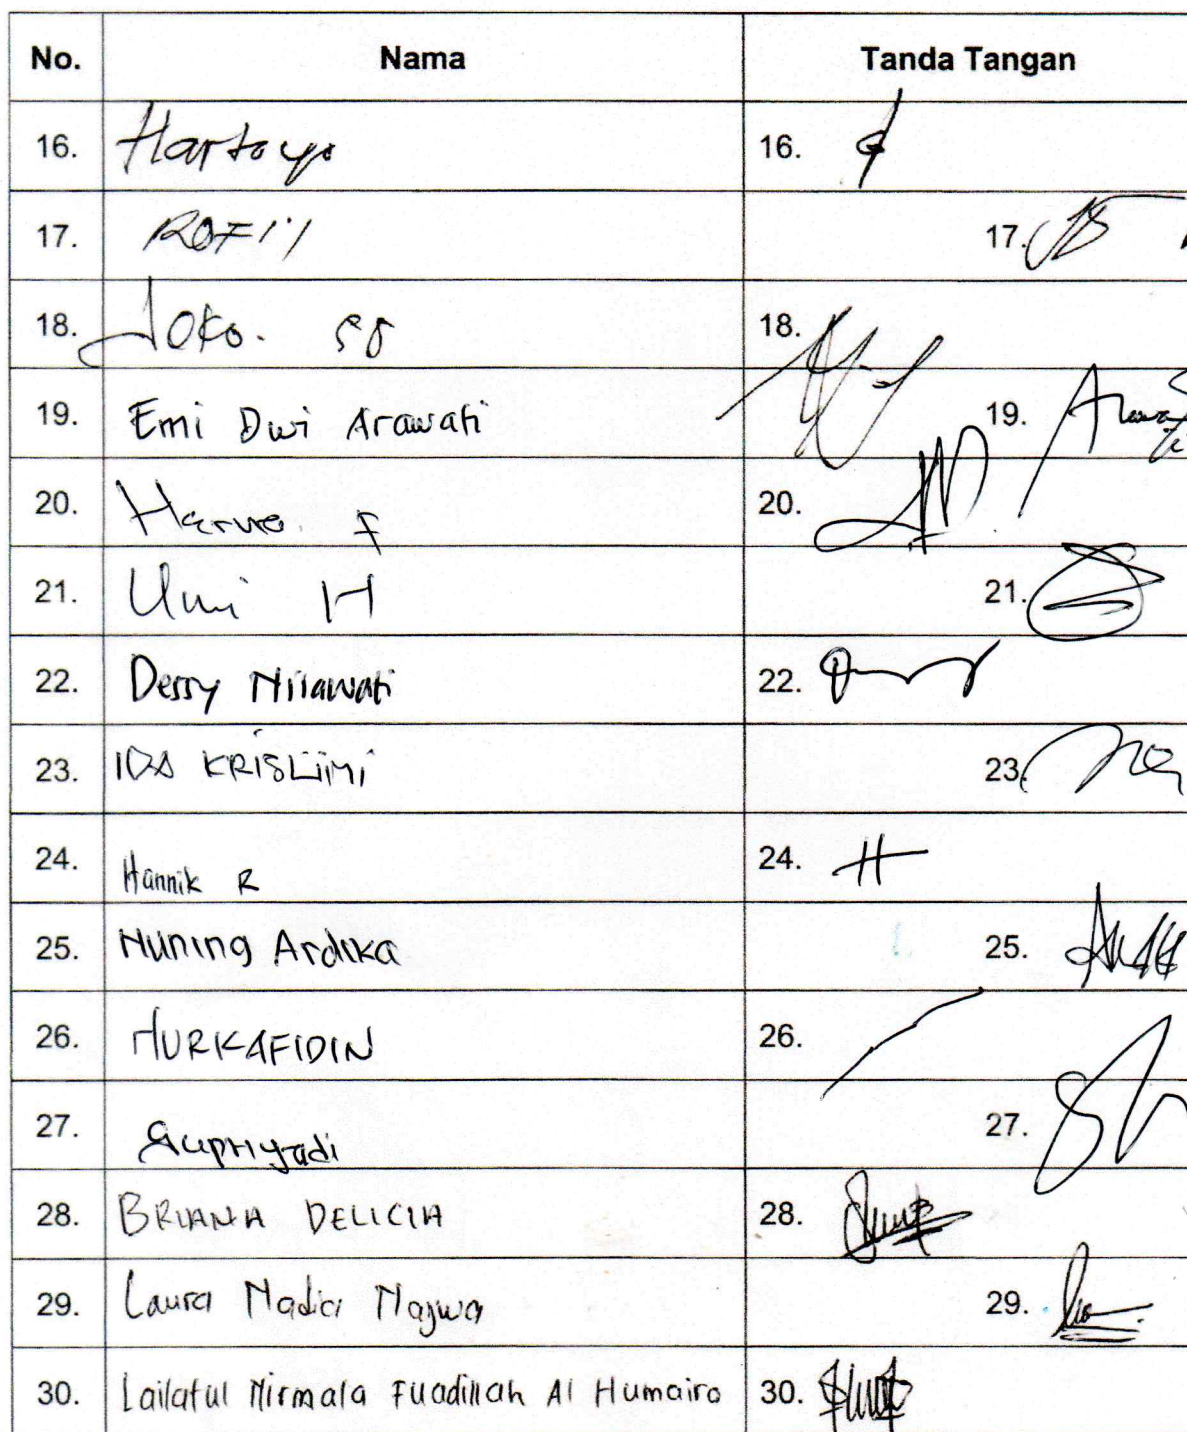 No. Nama Tanda Tangan
16. Hartoyo 16.
17. ROFI'I 17.
18. Joko. 18.
19. Emi Dwi Arawati 19.
20. 20.
21. Umi H 21.
22. Dessy Nilawati 22.
23. IDA 23.
24. Hannik R 24.
25. Nuning Ardika 25.
26. NURKAFIDIN 26.
27. Supriyadi 27.
28. BRIANA DELICIA 28.
29. Laura Nadia Najwa 29.
30. Lailatul Nirmala Fuadillah Al Humairo 30.